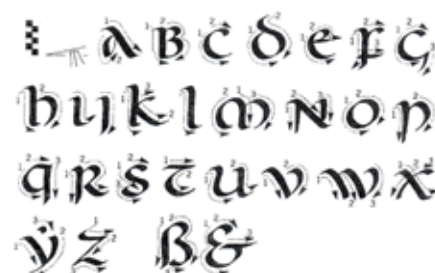 a B c d e f g
h i j k l m n o p
q R s t u v w x
y z ß &